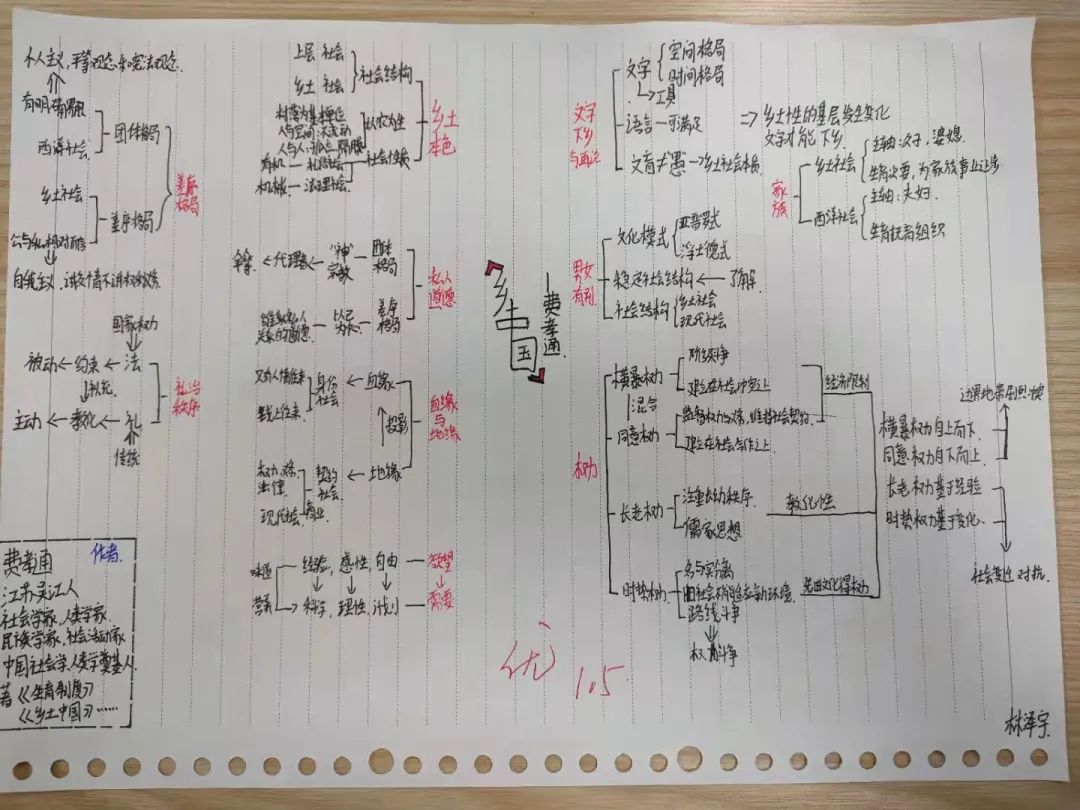 乡土中国
费孝通
乡土本色
社会结构
上层社会
乡土社会
以农为生
村落为基本单位
社会性质
有机—礼俗社会
机械—法理社会
差序格局
团体格局
个人主义,平等观念和宪法观念.
有明确界限
西洋社会
差序格局
乡土社会
公与私相对而言
自我主义,讲交情不讲权利义务
私人道德
团体格局
"神"宗教
代理者
差序格局
以己为中心
维系私人关系的道德
礼治秩序
国家权力
被动←约束←法
补充
主动←教化←礼
传统
血缘与地缘
血缘
身份社会
投影
地缘
契约社会
现代社会
商业
欲望
需要
经验,感性,自由
科学,理性,计划
文字下乡与再论
文字
空间格局
时间格局
工具
语言—可满足
文盲≠愚→乡土社会本质
⇒乡土性的基层发生变化
文字才能下乡
家族
乡土社会
主轴:父子,婆媳
生育次要,为家族事业让步
西洋社会
主轴:夫妇.
生育抚育组织
男女有别
文化模式
亚普罗式
浮士德式
稳定社会结构←了解
社会结构
乡土社会
现代社会
权力
横暴权力
阶级斗争
建立在社会冲突上
混合
同意权力
建立在社会合作之上
经济限制
长老权力
注重长幼秩序
儒家思想
教化性
时势权力
名与实分离
路线斗争
横暴权力自上而下
同意权力自下而上
长老权力基于经验
时势权力基于变化
社会变迁 对抗
作者.
费孝通
江苏吴江人
社会学家,人类学家.
民族学家,社会活动家
中国社会学,人类学奠基人.
著《生育制度》
《乡土中国》……
优
林泽宇